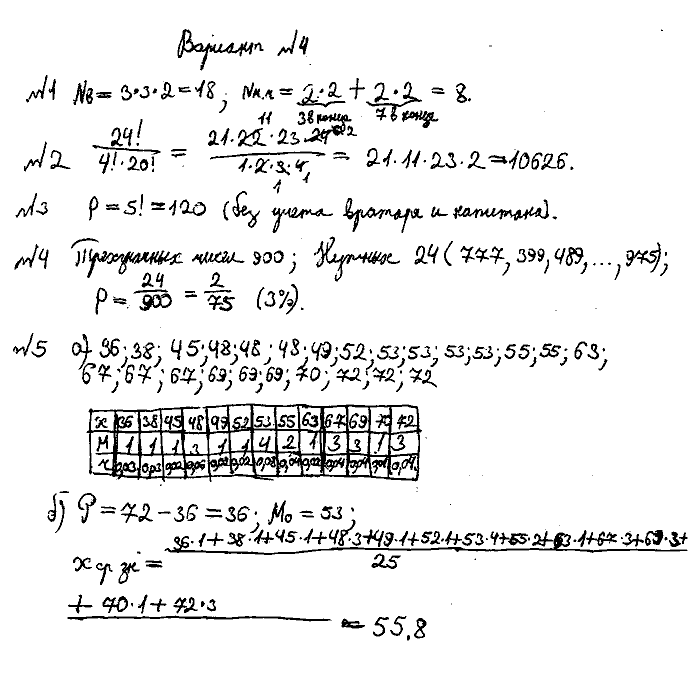 Вариант №4
№1 Nв = 3·3·2 = 18; Nн.ч = 2·2 + 2·2 = 8.
3 в конце 7 в конце
№2 24!/(4!·20!) = (21·22·23·24)/(1·2·3·4) = 21·11·23·2 = 10626.
№3 P = 5! = 120 (без учета вратаря и капитана).
№4 Трехзначных чисел 900; Нужных 24 (777, 399, 489, ..., 975);
P = 24/900 = 2/75 (3%).
№5 а) 36; 38; 45; 48; 48; 48; 49; 52; 53; 53; 53; 53; 55; 55; 63;
67; 67; 67; 69; 69; 69; 70; 72; 72; 72
x 36 38 45 48 49 52 53 55 63 67 69 70 72
M 1 1 1 3 1 1 4 2 1 3 3 1 3
б) P = 72 – 36 = 36; Mo = 53;
x ср зн = 36·1+38·1+45·1+48·3+49·1+52·1+53·4+55·2+63·1+67·3+69·3+
25
+ 70·1 + 72·3
= 55,8